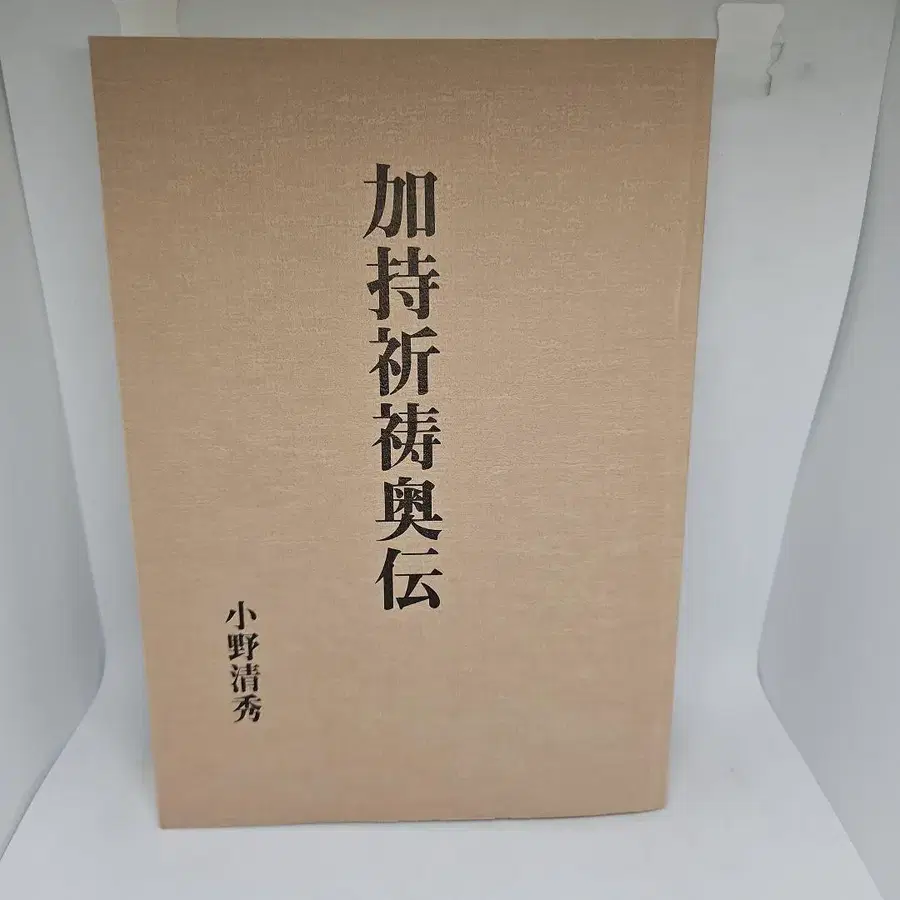 加持祈祷奥伝
小野清秀